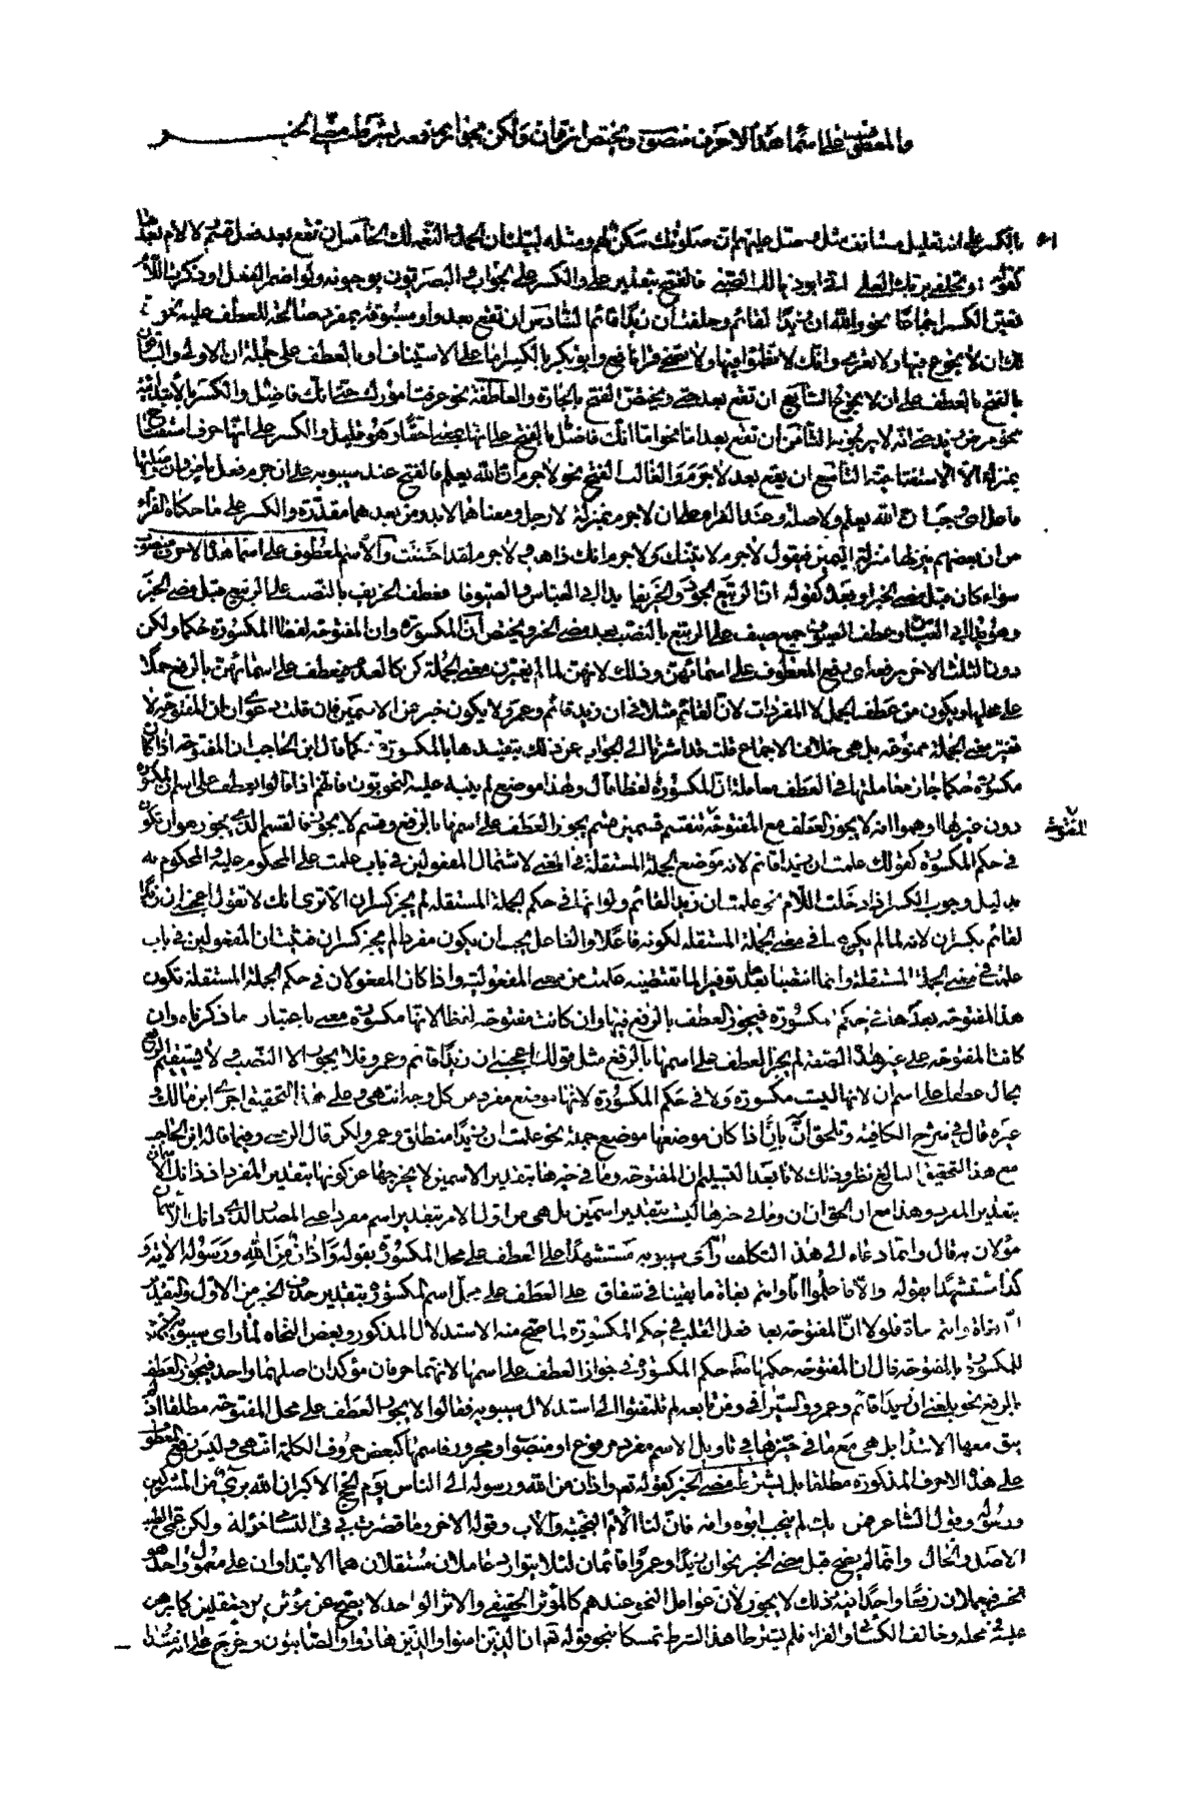 والمعطوف على اسماء هذه الاحرف منصوب ويختص ان وان ولكن بجواز رفعه بشرط مضي الخبر
بالكسر على انه تعليل مستأنف مثل صل عليهم ان صلوتك سكن لهم ومثله لبيك ان الحمد والنعمة لك الخامس ان تقع بعد فعل قسم لا لام بعدها
كقوله او تحلفي بربك العلي اني ابو ذيالك الصبي فالفتح بتقدير على والكسر على الجواب والبصريون يوجبونه ولو اضمر الفعل او ذكرت اللام
تعين الكسر اجماعا نحو والله ان زيدا لقائم وحلفت ان زيدا لقائم السادس ان تقع بعد واو مسبوقة بمفرد صالح للعطف عليه نحو
ان لك ان لا تجوع فيها ولا تعرى وانك لا تظمؤا فيها ولا تضحى قرأ نافع وابو بكر بالكسر اما على الاستيناف او بالعطف على جملة ان الاولى والباقون
بالفتح بالعطف على ان لا تجوع السابع ان تقع بعد حتى ويختص الفتح بالجارة والعاطفة نحو عرفت امورك حتى انك فاضل والكسر بالابتدائية
نحو مرض زيد حتى انه لا يرجونه الثامن ان تقع بعد اما نحو اما انك فاضل بالفتح على انها بمعنى احقا وهو قليل والكسر على انها حرف استفتاح
بمنزلة الا الاستفتاحية التاسع ان يقع بعد لا جرم والغالب الفتح نحو لا جرم ان الله يعلم فالفتح عند سيبويه على ان جرم فعل ماض وان وصلتها
فاعل اي وجب ان الله يعلم ولا صلة وعند الفراء على ان لا جرم بمنزلة لا رجل ومعناهما لا بد ومن بعدهما مقدرة والكسر على ما حكاه الفراء
من ان بعضهم ينزلها منزلة اليمين فيقول لا جرم لاتينك ولا جرم انك ذاهب ولا جرم لقد احسنت والاسم المعطوف على اسماء هذه الاحرف منصوب
سواء كان قبل مضي الخبر او بعده كقوله ان الربيع الجود والخريفا يدا ابي العباس والصيوفا فعطف الخريف بالنصب على الربيع قبل مضي الخبر
وهو يدا ابي العباس وعطف الصيوف جمع صيف على الربيع بالنصب بعد مضي الخبر ويختص ان المكسورة وان المفتوحة لفظا المكسورة حكما ولكن
دون الثلث الاخر برفعه اي برفع المعطوف على اسمائهن وذلك لانهن لما لم يغيرن معنى الجملة كن كالعدم فيعطف على اسمائهن بالرفع حملا
على محلها ويكون من عطف الجمل لا المفردات لان القائم مثلا في ان زيد قائم وعمرو لا يكون خبر عن الاسمين فان قلت دعوى ان ان المفتوحة لا
تغير معنى الجملة ممنوعة بل هي خلاف الاجماع قلت قد اشرنا الى الجواب عن ذلك بتقييدها بالمكسورة حكما قال ابن الحاجب ان المفتوحة اذا كان
مكسورة حكما جاز معاملتها في العطف معاملة ان المكسورة لفظا قال وهذا موضع لم ينبه عليه النحويون فانهم اذا قالوا يعطف على اسم ان المكسورة
دون غيرها اوهموا انه لا يجوز العطف مع المفتوحة والمفتوحة تنقسم قسمين قسم يجوز العطف على اسمها بالرفع وقسم لا يجوز فالقسم الذي يجوز هو ان تكون
في حكم المكسورة كقولك علمت ان زيدا قائم لانه موضع الجملة المستقلة في المعنى لاشتمال المفعولين في باب علمت على المحكوم عليه والمحكوم به
بدليل وجوب الكسر اذا دخلت اللام نحو علمت ان زيدا لقائم ولو انها في حكم الجملة المستقلة لم يجز كسران الا ترى انك لا تقول اعجبني ان زيدا
لقائم بكسر ان لانه لما لم يكن في معنى الجملة المستقلة لكونه فاعلا والفاعل يجب ان يكون مفردا لم يجز كسر ان فثبت ان المفعولين في باب
علمت في معنى الجملة المستقلة وانما انتصبا بعد توفيرا لما تقتضيه علمت من معنى المفعولية واذا كان المفعولان في حكم الجملة المستقلة تكون
هذه المفتوحة بعدها في حكم مكسورة فيجوز العطف بالرفع فيها وان كانت مفتوحة لفظا لانها مكسورة معنى باعتبار ما ذكرناه وان
كانت المفتوحة على غير هذه الصفة لم يجز العطف على اسمها بالرفع مثل قولك اعجبني ان زيدا قائم وعمرو فلا يجوز الا النصب لا يستقيم الرفع
بحال عطفا على اسم ان لانها ليست مكسورة ولا في حكم المكسورة لانها موضع مفرد من كل وجه انتهى وعلى هذا التحقيق اجرى ابن مالك في
غيره قال في شرح الكافية وتلحق ان بان اذا كان موضعها موضع جملة نحو علمت ان زيدا منطلق وعمرو لكن قال الرضي وفيما قاله ابن الحاجب
مع هذا التحقيق البالغ نظر وذلك لانا بعد التسليم ان المفتوحة وما في خبرها بتقدير الاسمين لا يخرجها عن كونها بتقدير المفرد اذ ذانك الاسمان
بتقدير المفرد وهذا مع ان الحق ان ان وما في خبرها ليست بتقدير اسمين بل هي من اول الامر بتقدير اسم مفرد اعني المصدر الذي ذانك الاسمان
مؤولان به قال وانما دعاه الى هذا التكلف انه رأى سيبويه مستشهدا على العطف على محل المكسورة بقوله واذان من الله ورسوله الاية و
كذا استشهد بقوله والا فاعلموا انا وانتم بغاة ما بقينا في شقاق على العطف على محل اسم المكسورة بتقدير حذف الخبر من الاول والتقدير
انا بغاة وانتم بغاة فلولا ان المفتوحة بعد فعل القلب في حكم المكسورة لما صح منه الاستدلال المذكور وبعض النحاة لما رأى سيبويه
للمكسورة بالمفتوحة قال ان المفتوحة حكمها مثل حكم المكسورة في جواز العطف على اسمها لانهما حرفان مؤكدان اصلهما واحد فيجوز العطف
بالرفع نحو بلغني ان زيدا قائم وعمرو والسيرافي ومن تابعه لم يلتفتوا الى استدلال سيبويه فقالوا لا يجوز العطف على محل المفتوحة مطلقا اذ لم
يبق معها الابتداء بل هي مع ما في خبرها في تأويل الاسم مفرد مرفوع او منصوب او مجرور فاسمها كبعض حروف الكلمة انتهى وليس رفع المعطوف
على هذه الاحرف المذكورة مطلقا بل بشرط مضي الخبر كقوله تعالى واذان من الله ورسوله الى الناس يوم الحج الاكبر ان الله بريء من المشركين
ورسوله وقول الشاعر فمن يك لم ينجب ابوه وامه فان لنا الام النجيبة والاب وقوله الاخر وما قصرت بي في التسامي خؤولة ولكن عمي الطيب
الاصل والخال وانما لم يصح قبل مضي الخبر نحو ان زيدا وعمرو قائمان لئلا يتوارد عاملان مستقلان هما الابتداء وان على معمول واحد هو
الخبر فيعملان رفعا واحدا فيه وذلك لا يجوز لان عوامل النحو عندهم كالمؤثر الحقيقي والاثر الواحد لا يصح عن مؤثرين مستقلين كما برهن
عليه في محله وخالف الكسائي والفراء فلم يشترطا هذا الشرط تمسكا بنحو قوله تعالى ان الذين امنوا والذين هادوا والصابئون وخرج على انه مبتدأ
المفتوحة